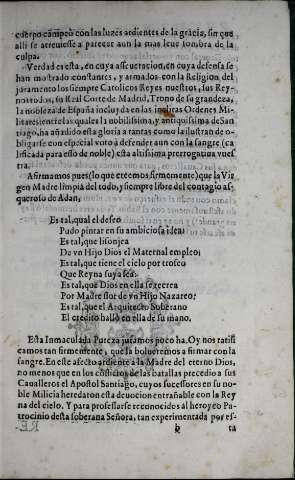 cuerpo campeò con las luzes ardientes de la gracia, sin que
alli se atreuiesse a parecer aun la mas leue sombra de la
culpa.
Verdad es esta, en cuya asseueracion, en cuya defensa se
han mostrado constantes, y armados con la Religion del
juramento los siempre Catolicos Reyes nuestros, sus Rey-
nos todos, su Real Corte de Madrid, Trono de su grandeza,
la nobleza de España incluyda en las inclitas Ordenes Mi-
litares; entre las quales la nobilissima, y antiquissima de San-
tiago, ha añadido esta gloria a tantas como la ilustran de o-
bligarse con especial voto à defender aun con la sangre (ca
lificada para esso de noble) esta altissima prerrogatiua vues
tra.
Afirmamos pues (lo que creemos firmemente) que la Vir
gen Madre limpia del todo, y siempre libre del contagio as
queroso de Adan,
Es tal, qual el deseo
Pudo pintar en su ambiciosa idea:
Es tal, que lisonjea
De vn Hijo Dios el Maternal empleo;
Es tal, que tiene el cielo por trofeo
Que Reyna suya sea:
Es tal, que Dios en ella se recrea
Por Madre flor de vn Hijo Nazareo;
Es tal, que el Arquitecto Soberano
El credito hallò en ella de su mano.
Esta Inmaculada Pureza juramos poco ha. Oy nos ratifi
camos tan firmemente, que la bolueremos a firmar con la
sangre. En este afecto ardiente a la Madre del eterno Dios,
no menos que en los conflictos de las batallas precedio a sus
Caualleros el Apostol Santiago, cuyos sucessores en su no-
ble Milicia heredaron esta deuocion entrañable con la Rey
na del cielo. Y para professarse reconocidos al heroyco Pa-
trocinio desta soberana Señora, tan experimentada por es-
ta